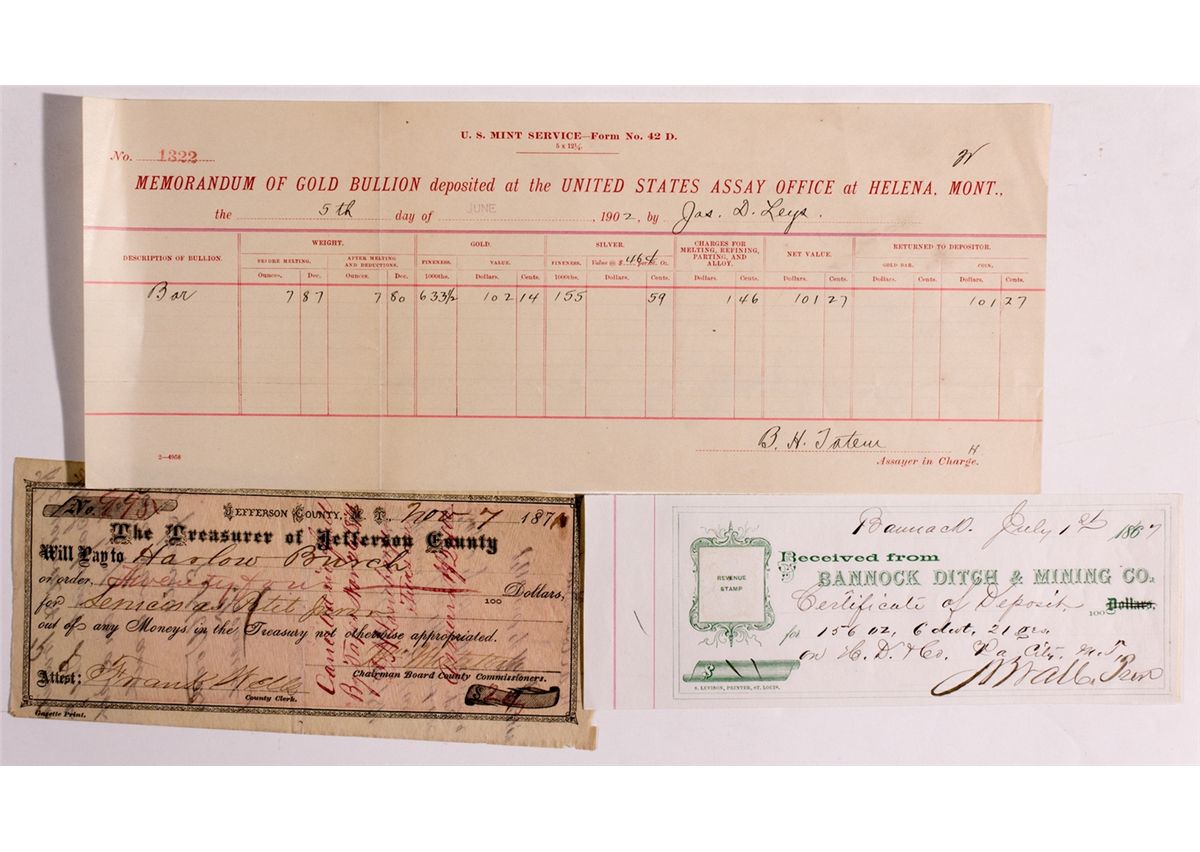 U. S. MINT SERVICE—Form No. 42 D.
5 x 12¼.
No. 1322
MEMORANDUM OF GOLD BULLION deposited at the UNITED STATES ASSAY OFFICE at HELENA, MONT.,
the 5th day of JUNE, 1902, by Jas. D. Leys.
DESCRIPTION OF BULLION. WEIGHT. GOLD. SILVER. CHARGES FOR MELTING, REFINING, PARTING, AND ALLOY. NET VALUE. RETURNED TO DEPOSITOR.
BEFORE MELTING. AFTER MELTING AND DEDUCTIONS. FINENESS. VALUE. FINENESS. Value @ $ .464 per Std. Oz. GOLD BAR. COIN.
Ounces. Dec. Ounces. Dec. 1000ths. Dollars. Cents. 1000ths. Dollars. Cents. Dollars. Cents. Dollars. Cents. Dollars. Cents. Dollars. Cents.
Bar 7 87 7 80 633½ 102 14 155 59 1 46 101 27 101 27
B. H. Tatem H
2—4958
Assayer in Charge.
No. 993
JEFFERSON COUNTY, M. T., Nov 7 187
The Treasurer of Jefferson County
Will Pay to Harlow Burch
or order, Dollars,
100
for
out of any Moneys in the Treasury not otherwise appropriated.
Chairman Board County Commissioners.
Attest: Frank
County Clerk.
$
Gazette Print.
Bannack. July 1st 1867
Received from
BANNOCK DITCH & MINING CO.
REVENUE STAMP
Certificate of Deposit 100 Dollars,
for 156 oz, 6 dwt, 21 grs
on H. D. & Co. Va. City. M. T.
$
Wall. Pres
S. LEVISON, PRINTER, ST. LOUIS.